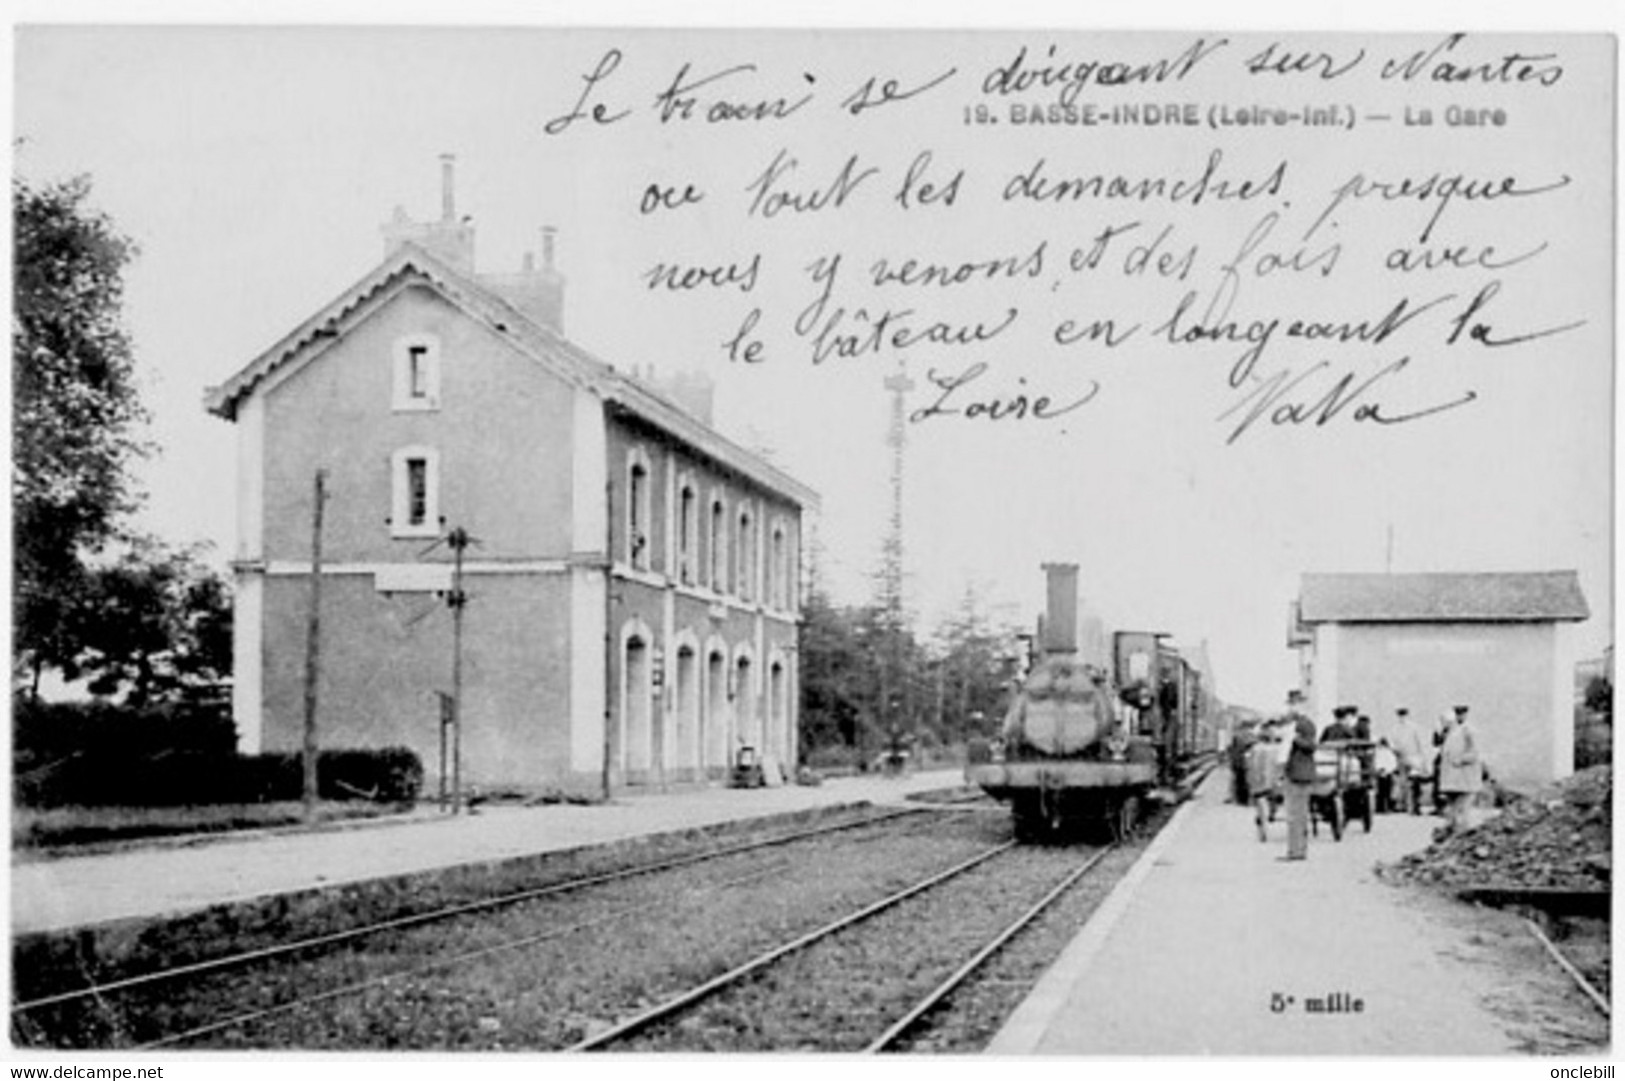 Le train se dirigeant sur Nantes
19. BASSE-INDRE (Loire-Inf.) — La Gare
ou tout les dimanches, presque
nous y venons, et des fois avec
le bâteau en longeant la
Loire VaVa
5e mille
www.delcampe.net
onclebill